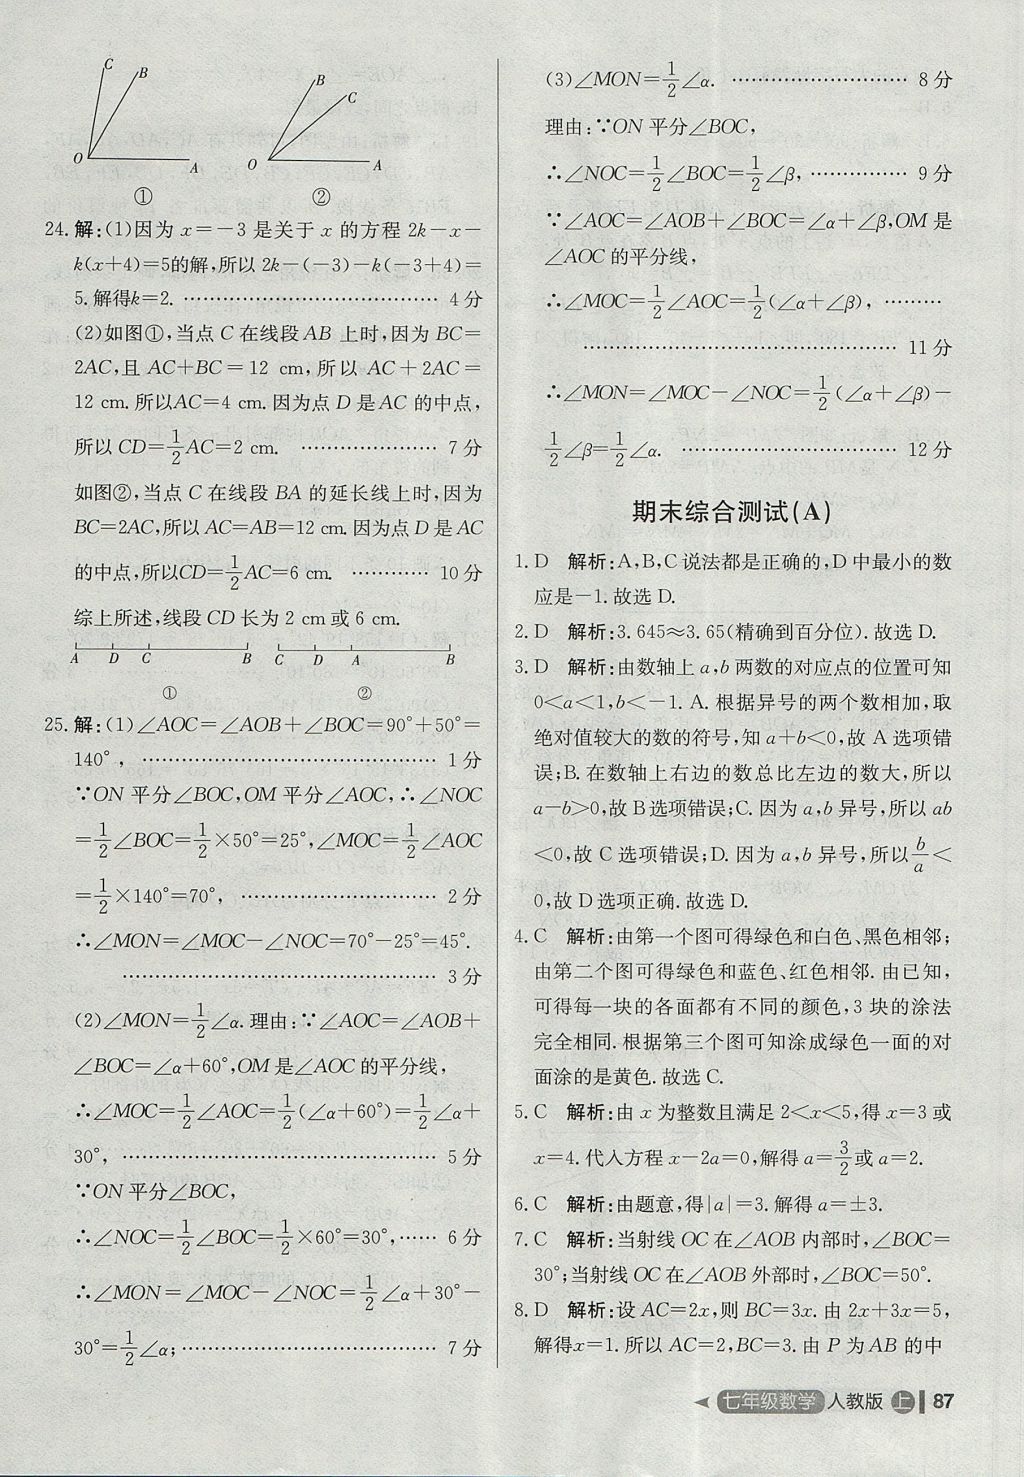 C
B
O
A
①
B
C
O
A
②
24. 解:(1)因为 x=-3 是关于 x 的方程 2k-x-
k(x+4)=5的解,所以 2k-(-3)-k(-3+4)=
5.解得k=2. ………………………………… 4 分
(2)如图①,当点 C 在线段 AB 上时,因为 BC=
2AC,且 AC+BC=12 cm,所以 AC+2AC=
12 cm.所以AC=4 cm.因为点 D 是 AC 的中点,
所以 CD=1/2AC=2 cm. ………………… 7 分
如图②,当点 C 在线段 BA 的延长线上时,因为
BC=2AC,所以 AC=AB=12 cm.因为点 D 是 AC
的中点,所以CD=1/2AC=6 cm. ………… 10 分
综上所述,线段 CD 长为 2 cm 或 6 cm.
A D C B
①
C D A B
②
25. 解:(1)∠AOC=∠AOB+∠BOC=90°+50°=
140°, ……………………………………… 1 分
∵ON 平分∠BOC,OM 平分∠AOC,∴∠NOC
=1/2∠BOC=1/2×50°=25°,∠MOC=1/2∠AOC
=1/2×140°=70°, ………………………… 2 分
∴∠MON=∠MOC-∠NOC=70°-25°=45°.
………………………………………… 3 分
(2)∠MON=1/2∠α.理由:∵∠AOC=∠AOB+
∠BOC=∠α+60°,OM 是∠AOC 的平分线,
∴∠MOC=1/2∠AOC=1/2(∠α+60°)=1/2∠α+
30°, ………………………………………… 5 分
∵ON 平分∠BOC,
∴∠NOC=1/2∠BOC=1/2×60°=30°,…… 6 分
∴∠MON=∠MOC-∠NOC=1/2∠α+30°-
30°=1/2∠α; ………………………………… 7 分
(3)∠MON=1/2∠α. ……………………… 8 分
理由:∵ON 平分∠BOC,
∴∠NOC=1/2∠BOC=1/2∠β, …………… 9 分
∵∠AOC=∠AOB+∠BOC=∠α+∠β,OM 是
∠AOC 的平分线,
∴∠MOC=1/2∠AOC=1/2(∠α+∠β), ………
………………………………………… 11 分
∴∠MON=∠MOC-∠NOC=1/2(∠α+∠β)-
1/2∠β=1/2∠α. …………………………… 12 分
期末综合测试(A)
1. D 解析:A,B,C 说法都是正确的,D 中最小的数
应是-1.故选 D.
2. D 解析:3.645≈3.65(精确到百分位).故选 D.
3. D 解析:由数轴上 a,b 两数的对应点的位置可知
0<a<1,b<-1. A.根据异号的两个数相加,取
绝对值较大的数的符号,知 a+b<0,故 A 选项错
误;B.在数轴上右边的数总比左边的数大,所以
a-b>0,故 B选项错误;C.因为 a,b 异号,所以 ab
<0,故 C 选项错误;D.因为 a,b 异号,所以b/a<
0,故 D 选项正确.故选 D.
4. C 解析:由第一个图可得绿色和白色、黑色相邻;
由第二个图可得绿色和蓝色、红色相邻.由已知,
可得每一块的各面都有不同的颜色,3 块的涂法
完全相同.根据第三个图可知涂成绿色一面的对
面涂的是黄色.故选 C.
5. C 解析:由 x 为整数且满足 2<x<5,得 x=3 或
x=4.代入方程 x-2a=0,解得 a=3/2或 a=2.
6. C 解析:由题意,得|a|=3.解得 a=±3.
7. C 解析:当射线 OC 在∠AOB 内部时,∠BOC=
30°;当射线 OC 在∠AOB 外部时,∠BOC=50°.
8. D 解析:设 AC=2x,则 BC=3x.由 2x+3x=5,
解得x=1.所以 AC=2,BC=3.由 P 为 AB 的中
七年级数学 人教版 上 87